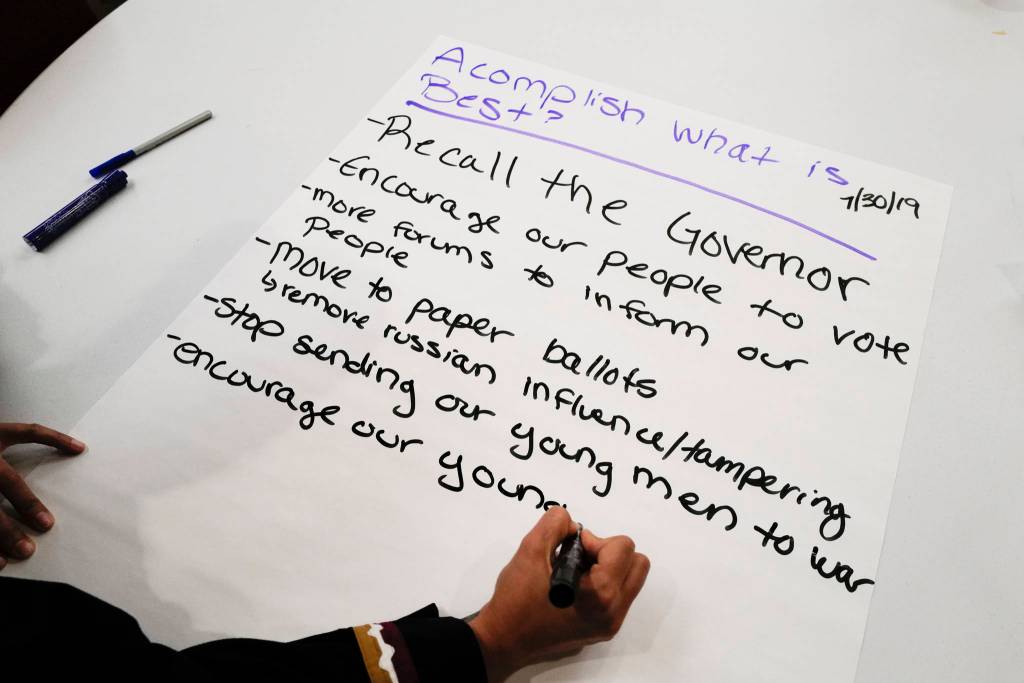 Acomplish what is
Best?
7/30/19
-Recall the Governor
-Encourage our people to vote
-more forums to inform our
people
-Move to paper ballots
↳remove russian influence/tampering
-Stop sending our young men to war
-encourage our young